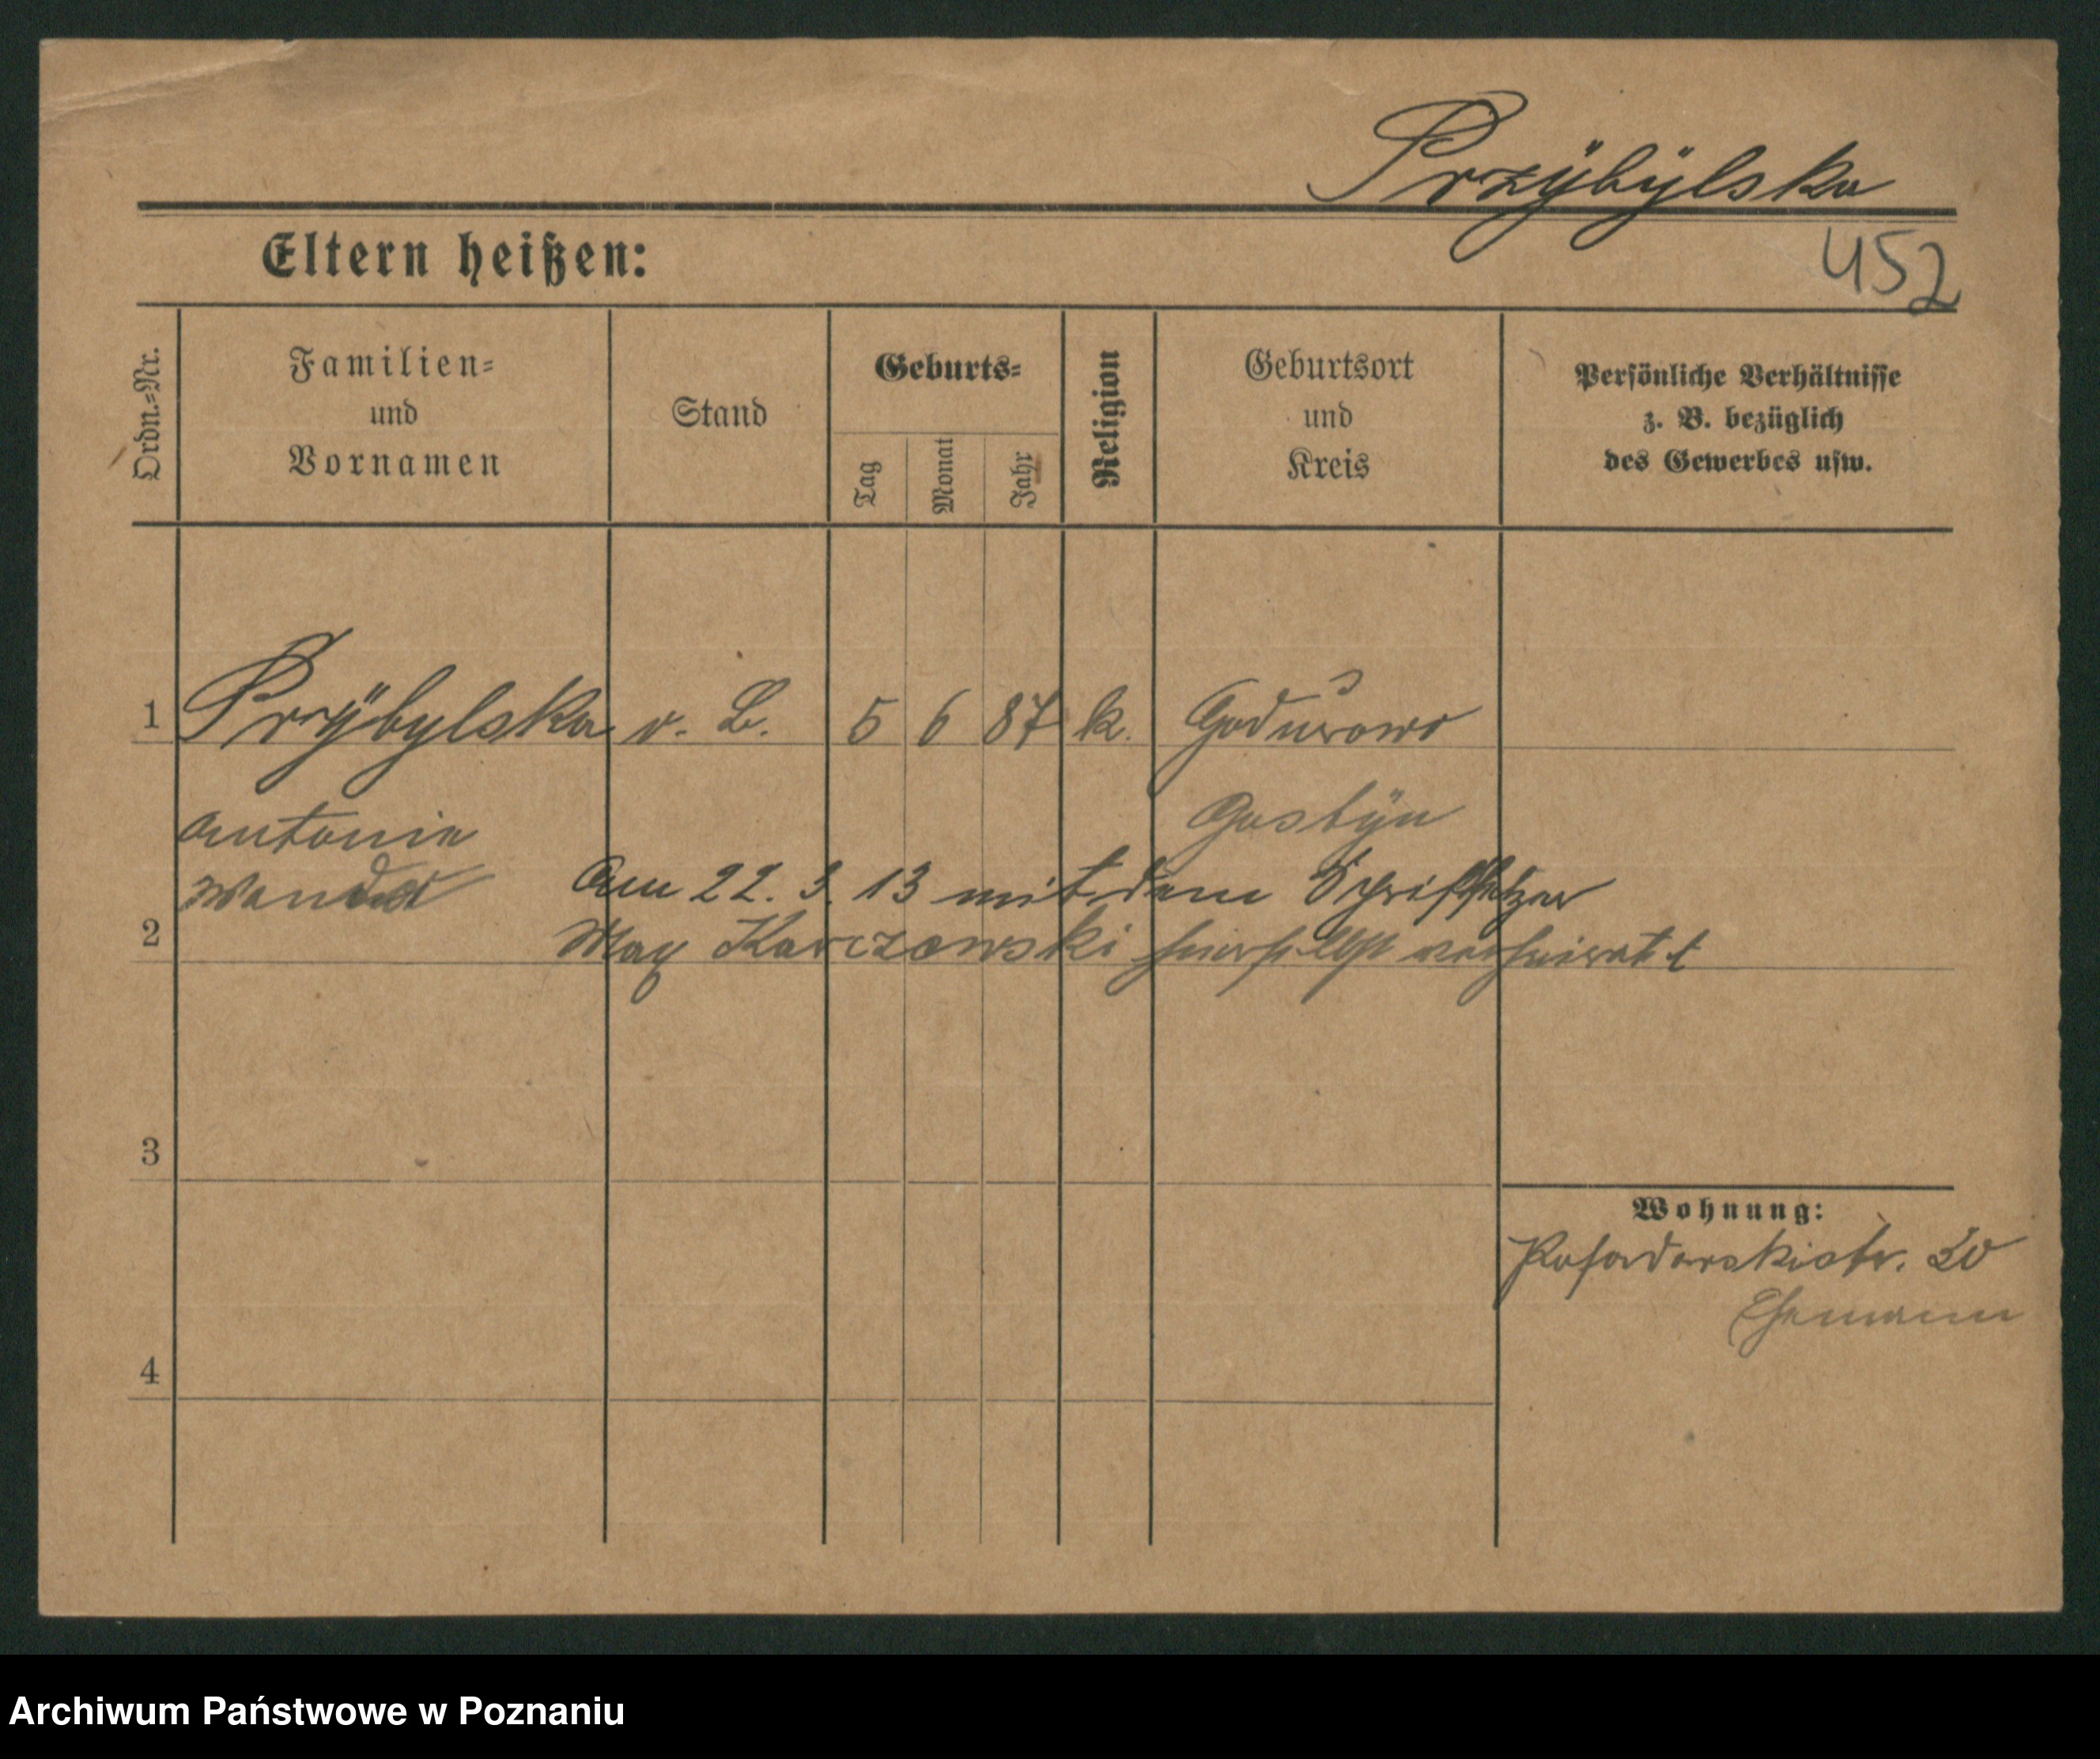 Przÿbÿlska
452
Eltern heißen:
Ordn.=Nr.
Familien=
und
Vornamen
Stand
Geburts=
Tag
Monat
Jahr
Religion
Geburtsort
und
Kreis
Persönliche Verhältnisse
z. B. bezüglich
des Gewerbes usw.
1 Przÿbylska v. L. 5 6 87 k. Godurowo
Gostÿn
Antonie
Wanda
Am 22. 3. 13 mit dem Schriftsetzer
2 Max Karczewski hierselbst verheiratet
3
4
Wohnung:
20
Ehemann
Archiwum Państwowe w Poznaniu